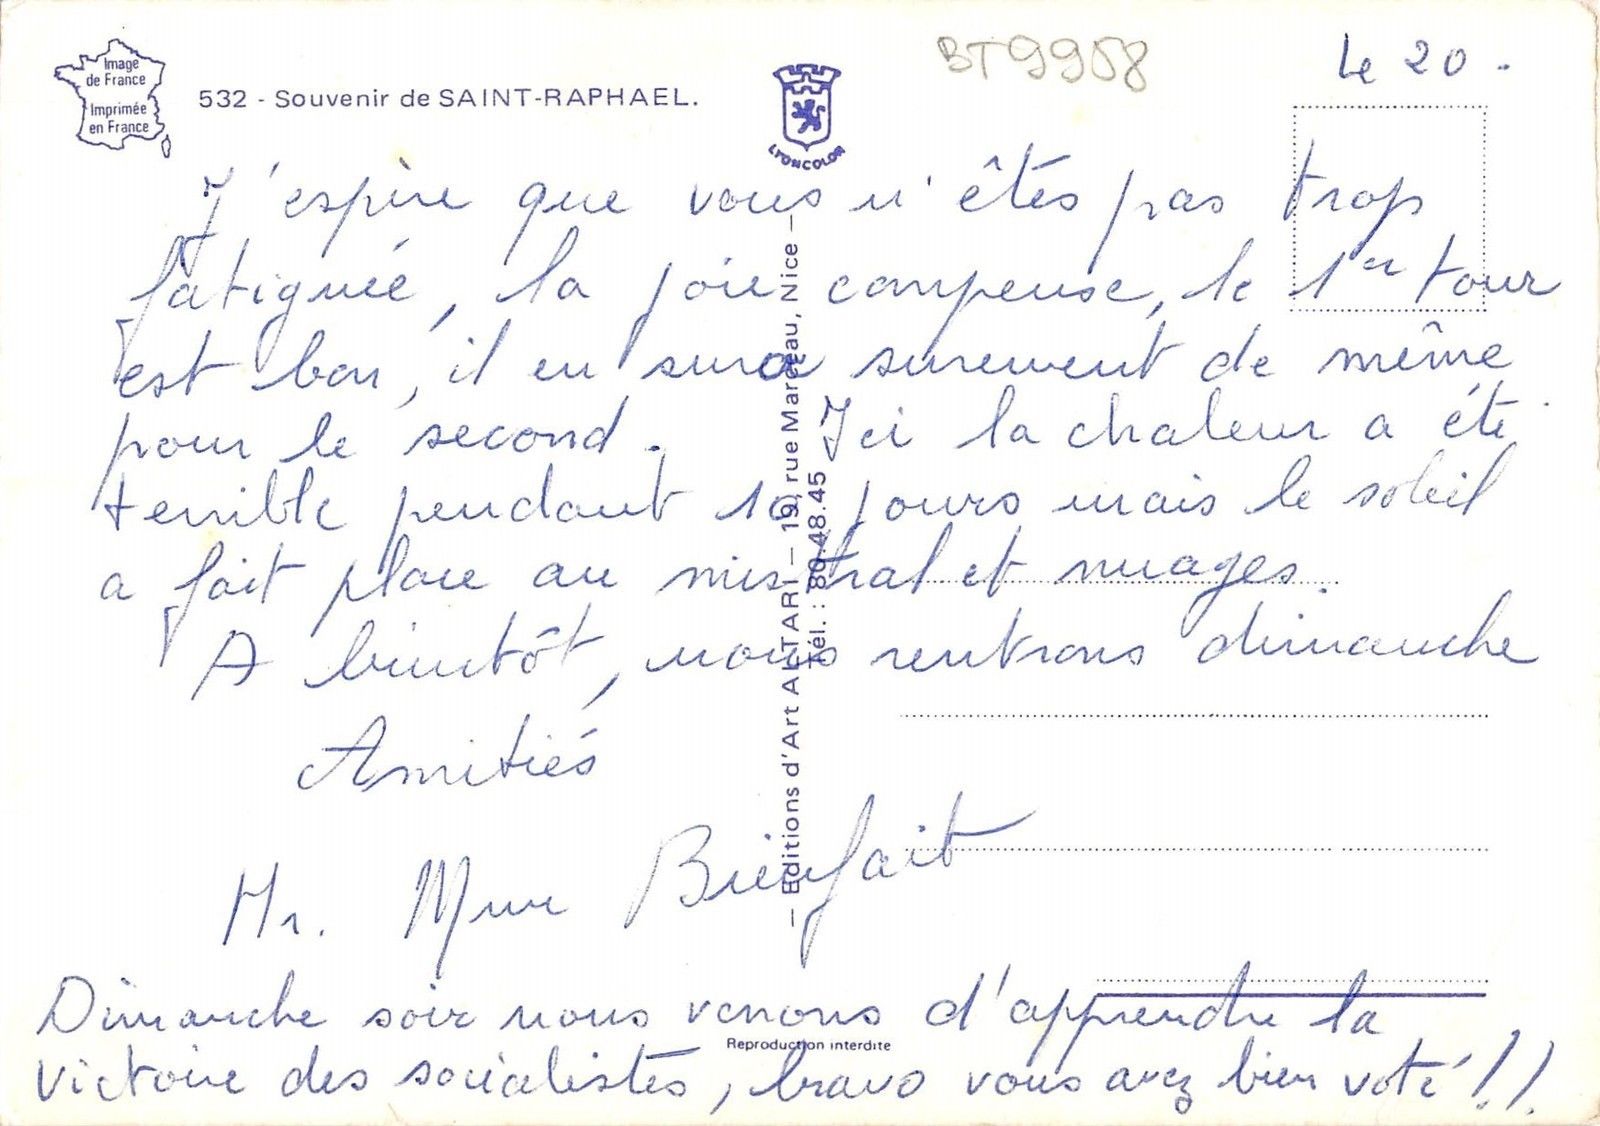 Image
de France
Imprimée
en France
532 - Souvenir de SAINT-RAPHAEL.
LYONCOLOR
BT9958
Le 20.
J'espère que vous n'êtes pas trop
fatiguée, la joie compense, le 1er tour
est bon, il en sura surement de même
pour le second. Ici la chaleur a été
terrible pendant 10 jours mais le soleil
a fait place au mistral et nuages.
A bientôt, nous rentrons dimanche
Amitiés
Mr. Mme Bienfait
Dimanche soir nous venons d'apprendre la
victoire des socialistes, bravo vous avez bien voté!!
— Editions d'Art ALTARI — 19, rue Marceau, Nice —
Tél. : 80.48.45
Reproduction interdite